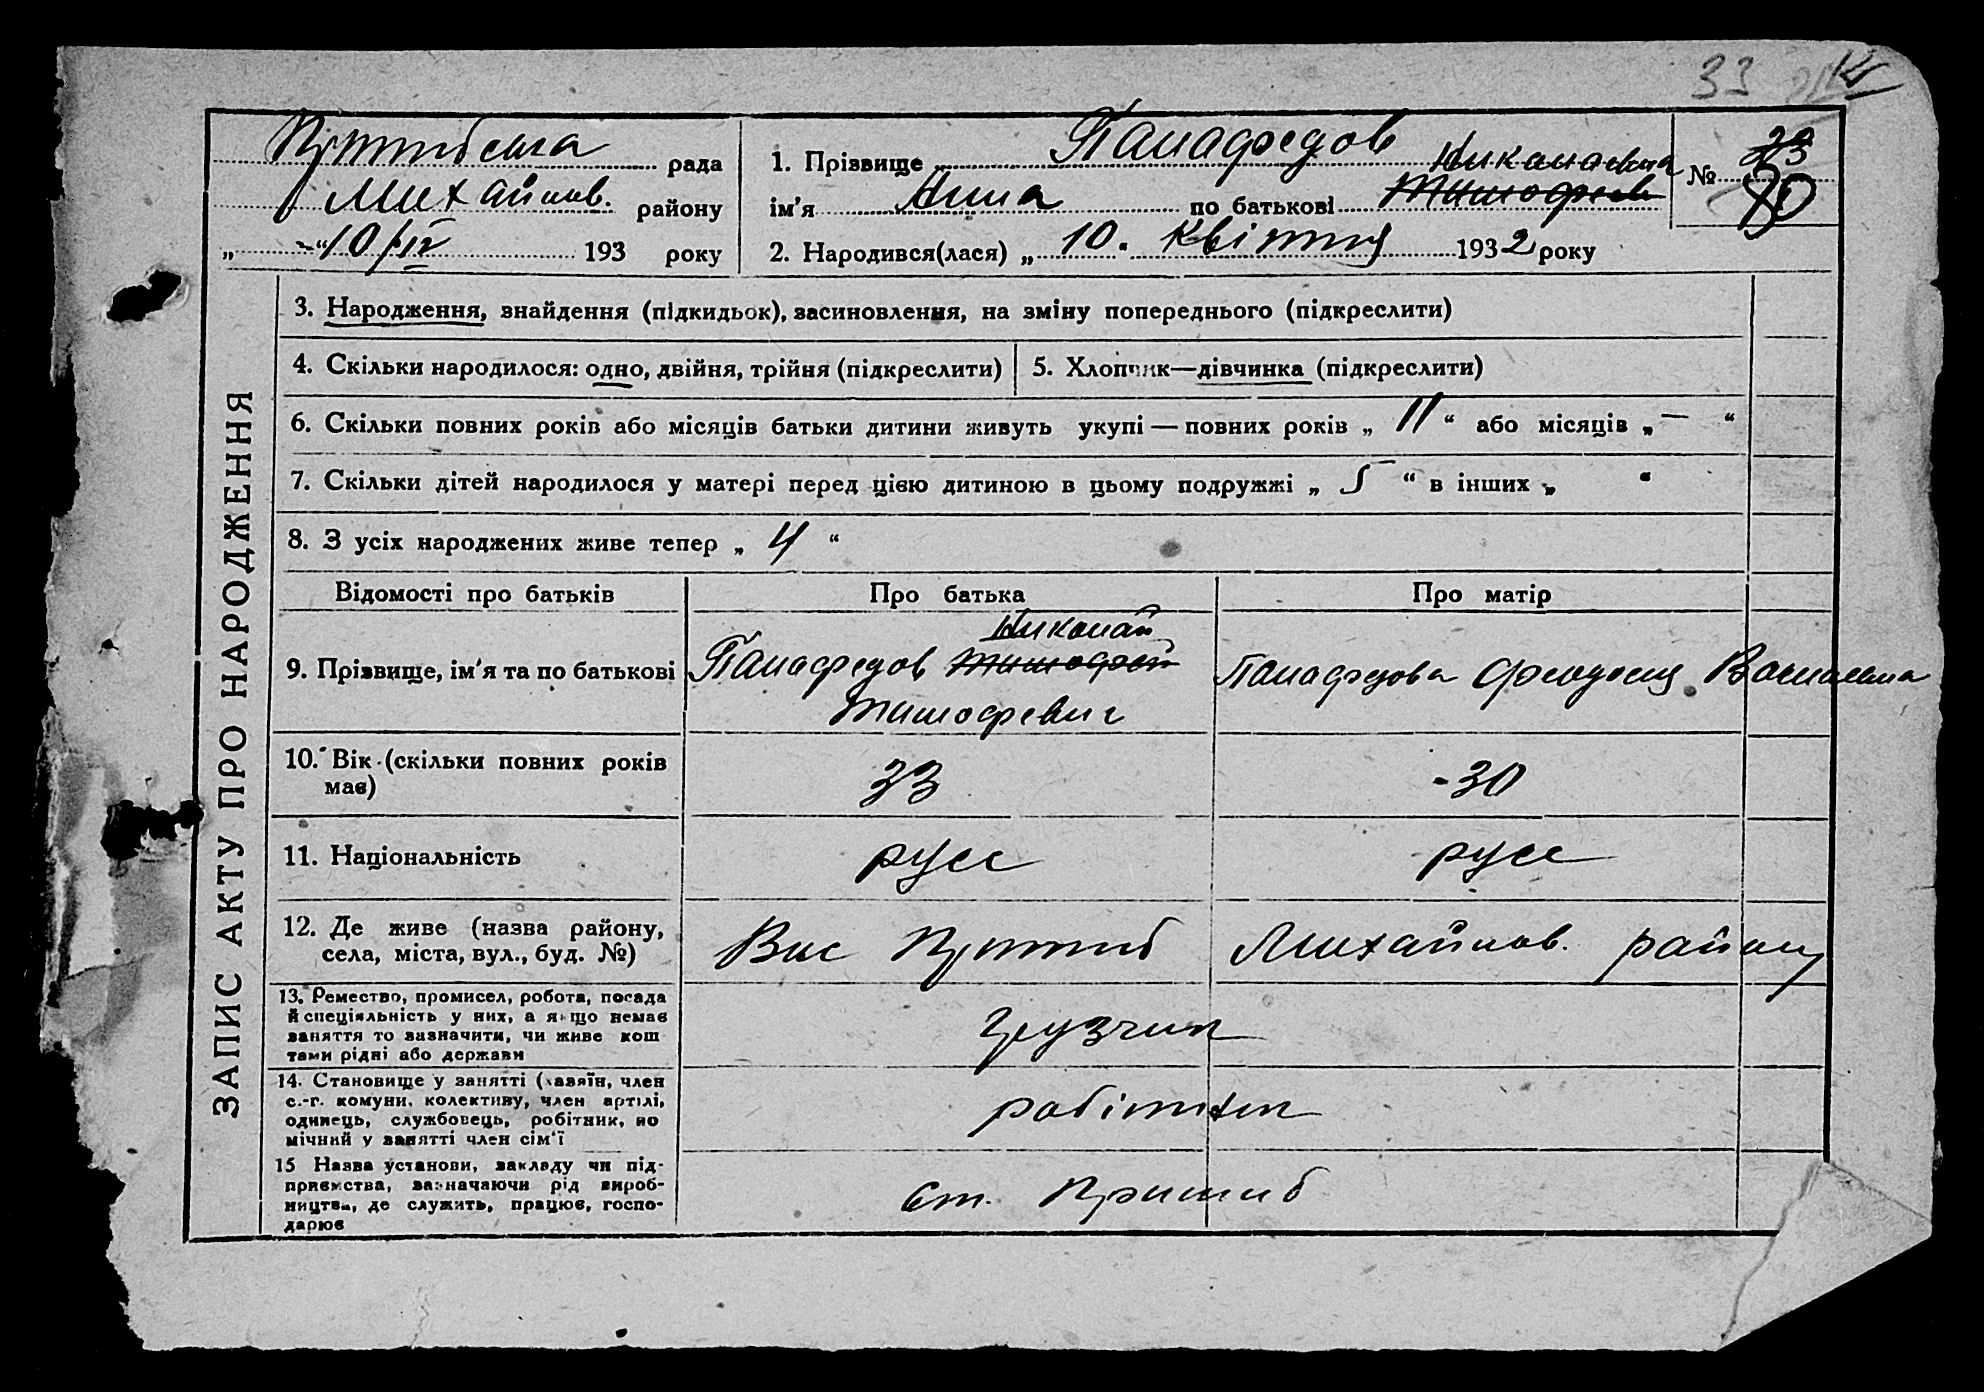 33
Пришибська рада
Михайлов. району
„ “ 10/IV 193 року
1. Прізвище Панафедов
Николаевна
ім'я Анна по батькові Тимофеев
№ 23
2. Народився(лася) „ 10. Квітня 1932 року
ЗАПИС АКТУ ПРО НАРОДЖЕННЯ
3. Народження, знайдення (підкидьок), засиновлення, на зміну попереднього (підкреслити)
4. Скільки народилося: одно, двійня, трійня (підкреслити)
5. Хлопчик—дівчинка (підкреслити)
6. Скільки повних років або місяців батьки дитини живуть укупі — повних років „ 11 “ або місяців „ — “
7. Скільки дітей народилося у матері перед цією дитиною в цьому подружжі „ 5 “ в інших „ “
8. З усіх народжених живе тепер „ 4 “
Відомості про батьків
Про батька
Про матір
9. Прізвище, ім'я та по батькові
Николай
Панафедов Тимофей
Тимофевич
Панафедова Феодосия Васильевна
10. Вік (скільки повних років
має)
33
-30
11. Національність
русс
русс
12. Де живе (назва району,
села, міста, вул., буд. №)
Вис Пришиб Михайлов. району
13. Ремество, промисел, робота, посада
й спеціяльність у них, а якщо немає
заняття то зазначити, чи живе кош
тами рідні або держави
грузчик
14. Становище у занятті (хазяїн, член
с.-г. комуни, колективу, член артілі,
одинець, службовець, робітник, по
мічний у занятті член сім'ї
робітник
15 Назва установи, закладу чи під-
приємства, зазначаючи рід вироб-
ництва, де служить, працює, госпо-
дарює
ст. Пришиб